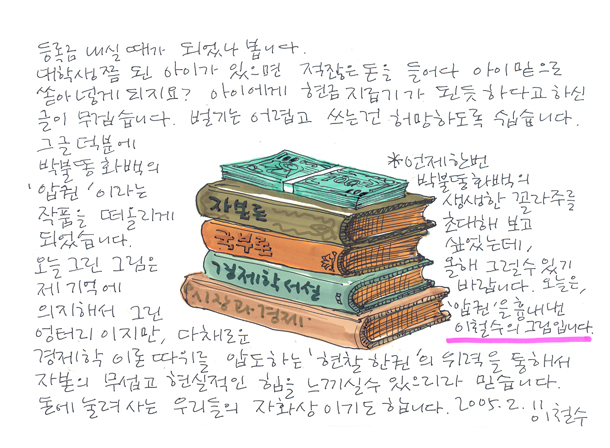 등록금 내실 때가 되었나 봅니다.
대학생쯤 된 아이가 있으면 적잖은 돈을 들어다 아이 밑으로
쏟아 넣게 되지요? 아이에게 현금지급기가 된듯 하다고 하신
글이 무겁습니다. 벌기는 어렵고 쓰는건 허망하도록 쉽습니다.
그글 덕분에
박불똥 화백의
'압권'이라는
작품을 떠올리게
되었습니다.
오늘 그린 그림은
제 기억에
의지해서 그린
엉터리이지만, 다채로운
경제학 이론 따위를 압도하는 '현찰 한권'의 위력을 통해서
자본의 무섭고 현실적인 힘을 느끼실수 있으리라 믿습니다.
돈에 눌려 사는 우리들의 자화상이기도 합니다. 2005.2.11 이철수
*언제한번
박불똥화백의
생생한 꼴라주를
초대해 보고
싶었는데,
올해 그럴수 있기
바랍니다. 오늘은,
'압권'을 흉내낸
이철수의 그림입니다.
자본론
국부론
경제학서설
시장과 경제